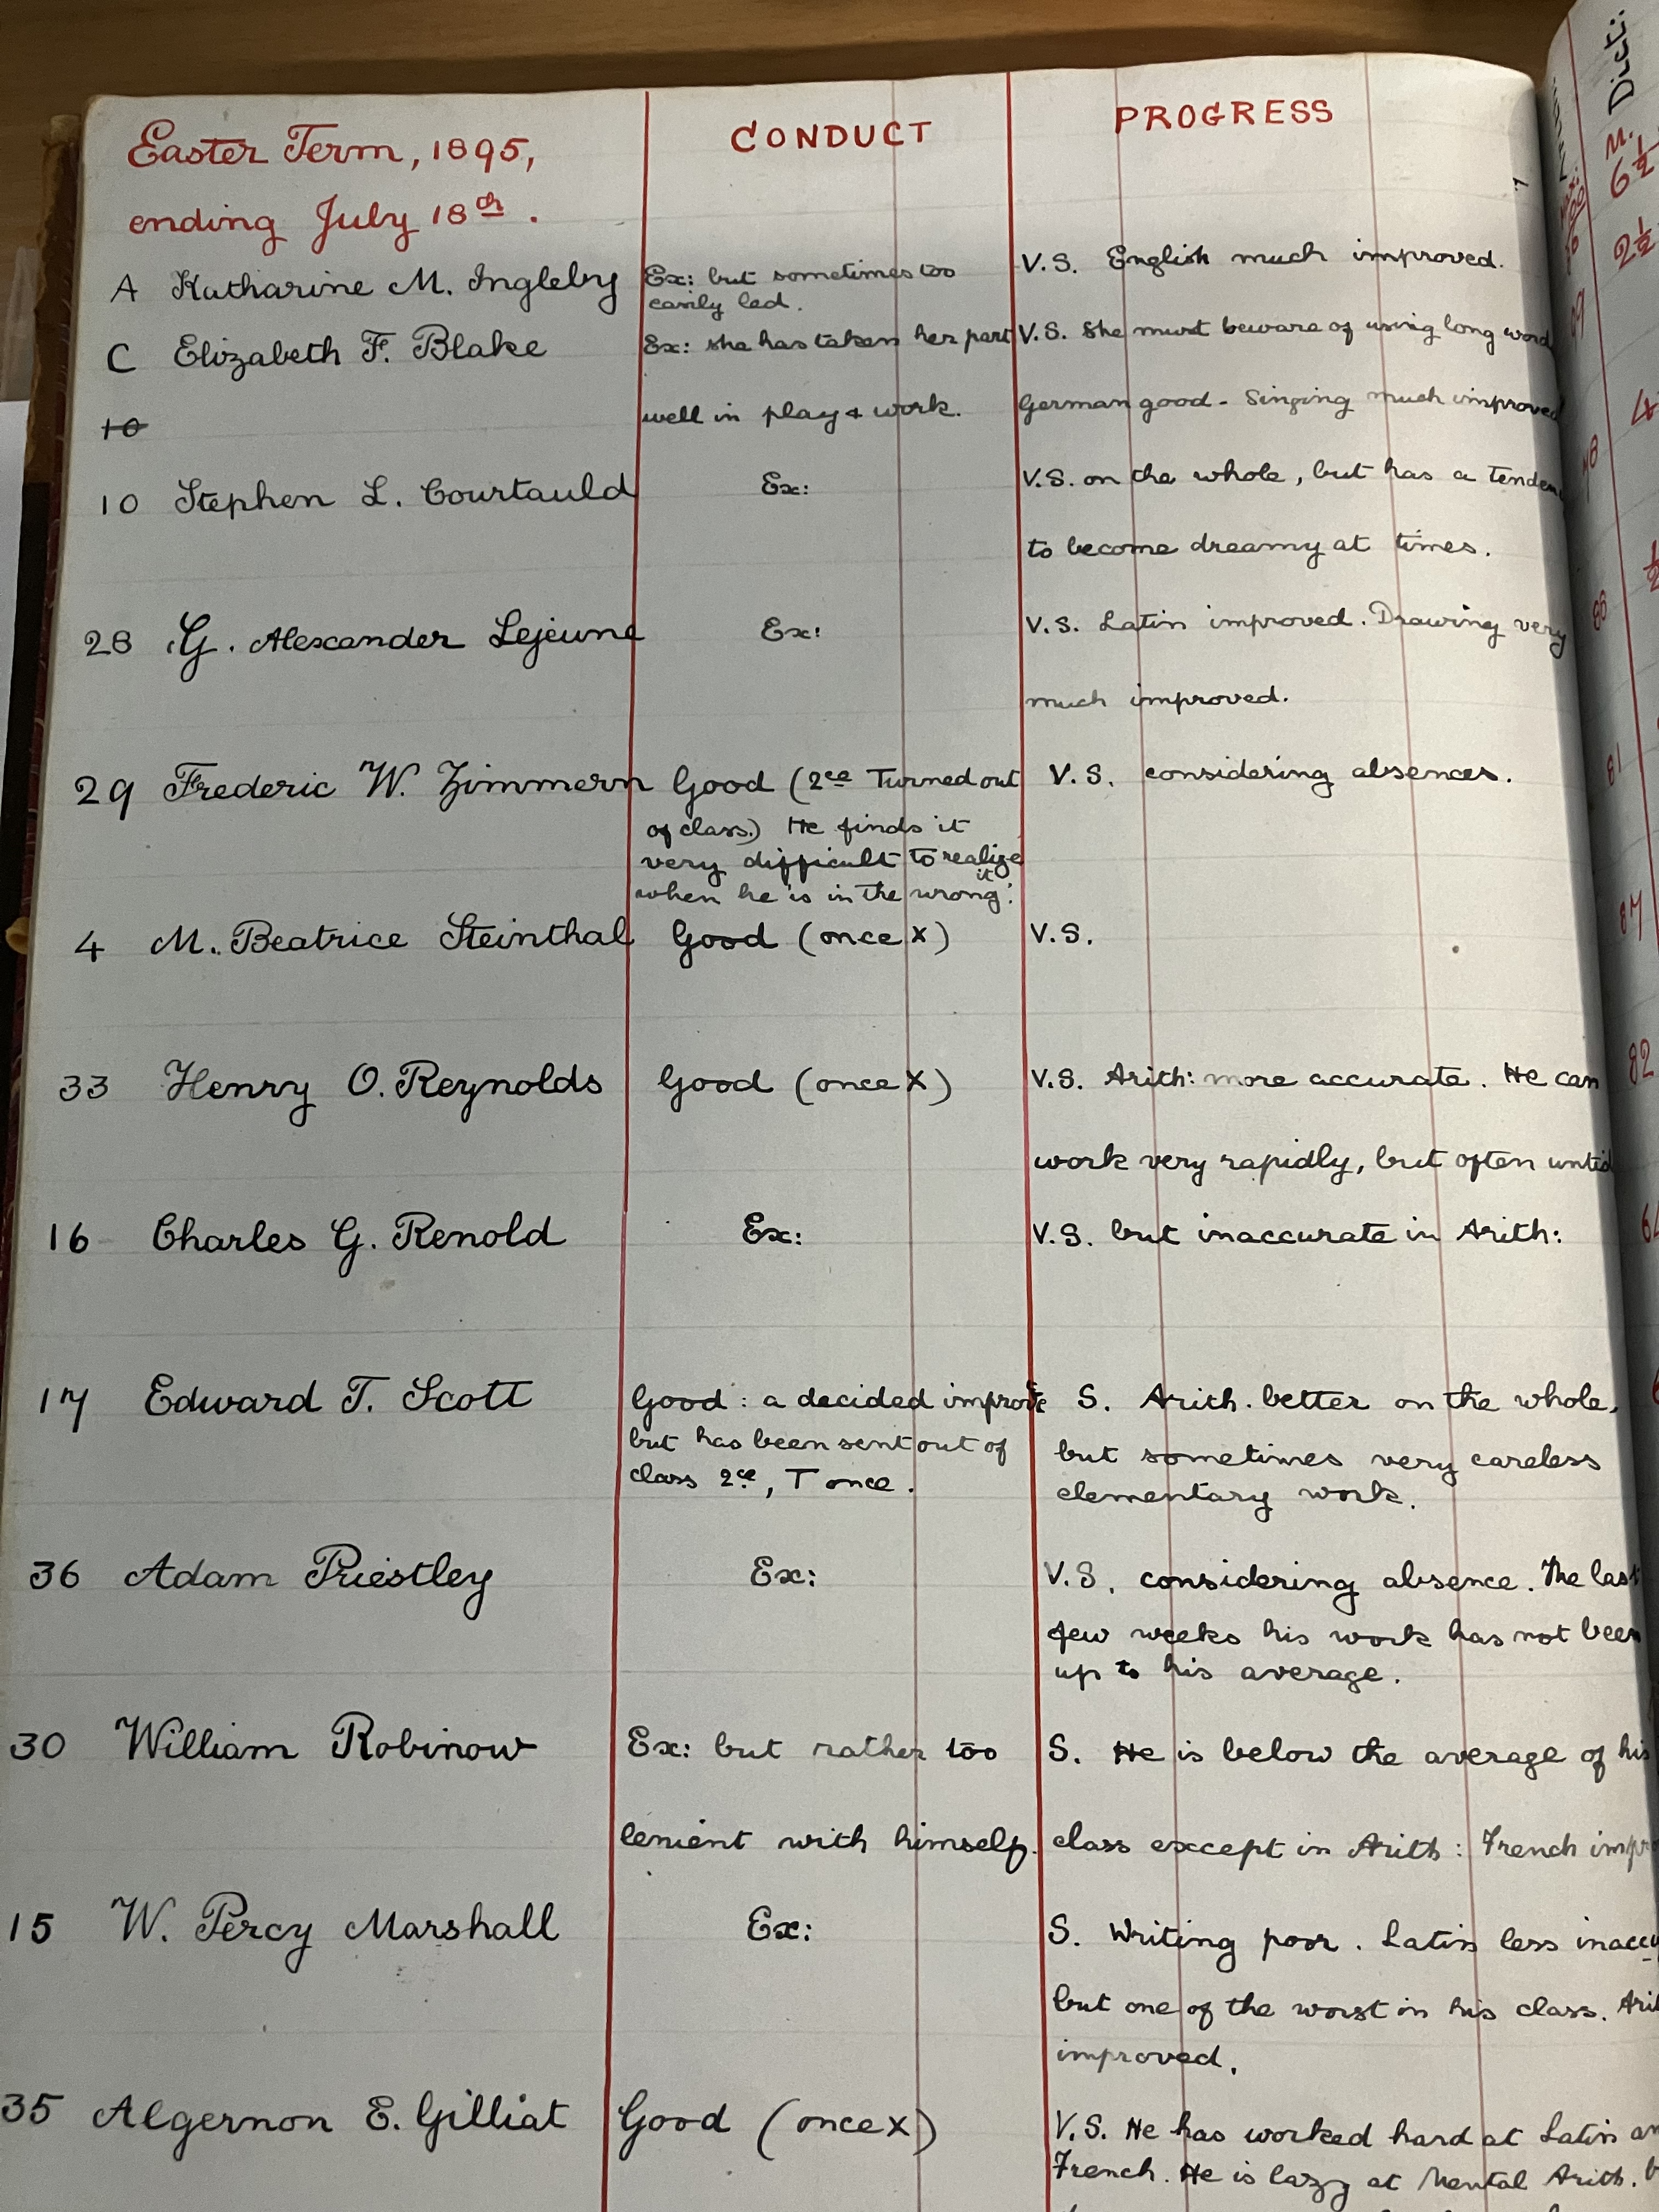 Easter Term, 1895,
CONDUCT
PROGRESS
ending July 18th.
A Katharine M. Ingleby
Ex: but sometimes too
easily led.
V.S. English much improved.
C Elizabeth F. Blake
Ex: she has taken her part
well in play & work.
V.S. She must beware of using long word
German good - Singing much improved
10
10 Stephen L. Courtauld
Ex:
V.S. on the whole, but has a tenden
to become dreamy at times.
28 G. Alexander Lejeune
Ex:
V.S. Latin improved. Drawing very
much improved.
29 Frederic W. Zimmern
Good (2ce Turned out
of class.) He finds it
very difficult to realize
it
when he is in the wrong.
V.S. considering absences.
4 M. Beatrice Steinthal
Good (once X)
V.S.
33 Henry O. Reynolds
Good (once X)
V.S. Arith: more accurate. He can
work very rapidly, but often untid
16 Charles G. Renold
Ex:
V.S. but inaccurate in Arith:
17 Edward T. Scott
Good: a decided improve
but has been sent out of
class 2ce, T once.
S. Arith. better on the whole,
but sometimes very careless
elementary work.
36 Adam Priestley
Ex:
V.S. considering absence. The last
few weeks his work has not been
up to his average.
30 William Robinow
Ex: but rather too
lenient with himself.
S. He is below the average of his
class except in Arith: French impr
15 W. Percy Marshall
Ex:
S. Writing poor. Latin less inaccu
but one of the worst in his class. Arit
improved.
35 Algernon E. Gilliat
Good (once X)
V.S. He has worked hard at Latin an
French. He is lazy at Mental Arith. b
Dicti:
M.
6½
2½
88
81
87
82